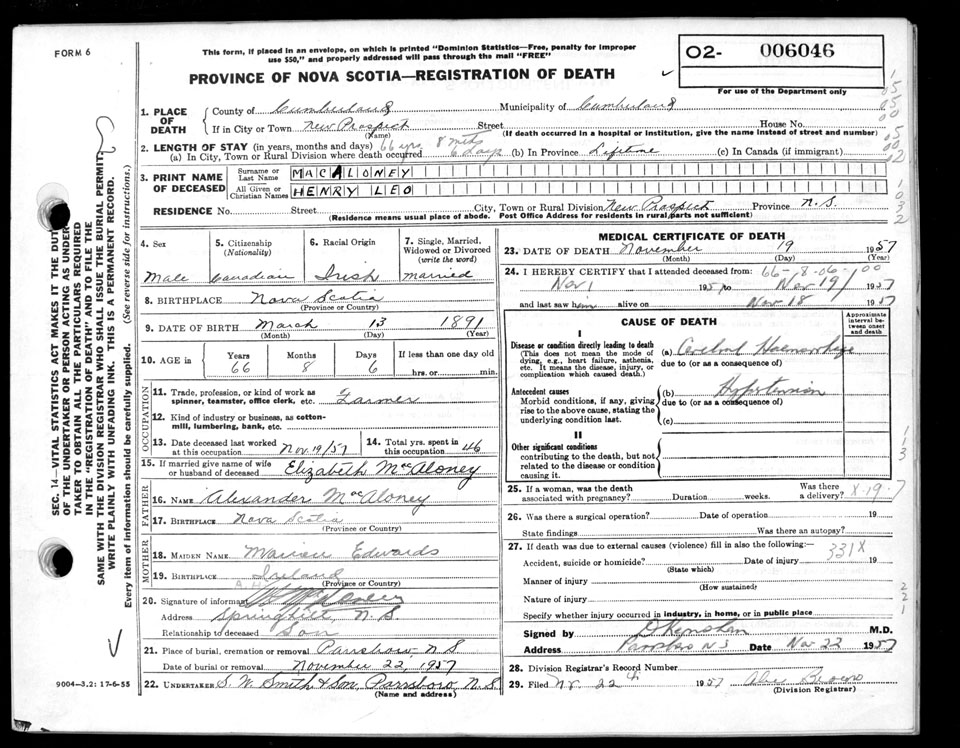 FORM 6
This form, if placed in an envelope, on which is printed "Dominion Statistics—Free, penalty for improper
use $50," and properly addressed will pass through the mail "FREE"
PROVINCE OF NOVA SCOTIA—REGISTRATION OF DEATH
O2- 006046
For use of the Department only
1. PLACE OF DEATH
County of Cumberland Municipality of Cumberland
If in City or Town New Prospect Street House No.
(Name) (If death occurred in a hospital or institution, give the name instead of street and number)
2. LENGTH OF STAY (in years, months and days) 66 yrs. 8 mths
(a) In City, Town or Rural Division where death occurred 6 days (b) In Province Lifetime (c) In Canada (if immigrant)
3. PRINT NAME OF DECEASED
Surname or Last Name MACALONEY
All Given or Christian Names HENRY LEO
RESIDENCE No. Street City, Town or Rural Division New Prospect Province N.S.
(Residence means usual place of abode. Post Office Address for residents in rural parts not sufficient)
4. Sex
Male
5. Citizenship (Nationality)
Canadian
6. Racial Origin
Irish
7. Single, Married, Widowed or Divorced (write the word)
married
8. BIRTHPLACE Nova Scotia
(Province or Country)
9. DATE OF BIRTH March 13 1891
(Month) (Day) (Year)
10. AGE in Years Months Days If less than one day old
66 8 6 hrs. or min.
OCCUPATION
11. Trade, profession, or kind of work as spinner, teamster, office clerk, etc. Farmer
12. Kind of industry or business, as cotton-mill, lumbering, bank, etc.
13. Date deceased last worked at this occupation Nov. 19/57
14. Total yrs. spent in this occupation 46
15. If married give name of wife or husband of deceased Elizabeth MacAloney
FATHER
16. NAME Alexander MacAloney
17. BIRTHPLACE Nova Scotia
(Province or Country)
MOTHER
18. MAIDEN NAME Edwards
19. BIRTHPLACE Ireland
(Province or Country)
20. Signature of informant
Address Springhill, N.S.
Relationship to deceased Son
21. Place of burial, cremation or removal Parrsboro, N.S
Date of burial or removal November 22, 1957
22. UNDERTAKER S. W. Smith & Son, Parrsboro, N.S.
(Name and address)
MEDICAL CERTIFICATE OF DEATH
23. DATE OF DEATH November 19 1957
(Month) (Day) (Year)
66-8-06-1 00
24. I HEREBY CERTIFY that I attended deceased from
Nov 1 1957 to Nov 19 1957
and last saw him alive on Nov 18 1957
CAUSE OF DEATH
Approximate interval between onset and death
I
Disease or condition directly leading to death
(This does not mean the mode of dying, e.g., heart failure, asthenia, etc. It means the disease, injury, or complication which caused death.)
(a) Cerebral Haemorrhage
due to (or as a consequence of)
Antecedent causes
Morbid conditions, if any, giving rise to the above cause, stating the underlying condition last.
(b) Hypertension
due to (or as a consequence of)
(c)
II
Other significant conditions
contributing to the death, but not related to the disease or condition causing it.
25. If a woman, was the death associated with pregnancy? Duration weeks. Was there a delivery? X-19-7
26. Was there a surgical operation? Date of operation 19
State findings Was there an autopsy?
27. If death was due to external causes (violence) fill in also the following:—
331X
Accident, suicide or homicide? Date of injury 19
(State which)
Manner of injury
(How sustained)
Nature of injury
Specify whether injury occurred in industry, in home, or in public place
Signed by M.D.
Address Parrsboro N S Date Nov 22 1957
28. Division Registrar's Record Number
29. Filed 22th 1957
(Division Registrar)
SEC. 14—VITAL STATISTICS ACT MAKES IT THE DUTY
OF THE UNDERTAKER OR PERSON ACTING AS UNDER-
TAKER TO OBTAIN ALL THE PARTICULARS REQUIRED
IN THE "REGISTRATION OF DEATH" AND TO FILE THE
SAME WITH THE DIVISION REGISTRAR WHO SHALL ISSUE THE BURIAL PERMIT.
WRITE PLAINLY WITH UNFADING INK. THIS IS A PERMANENT RECORD.
Every item of information should be carefully supplied. (See reverse side for instructions.)
9004—3.2: 17-6-55